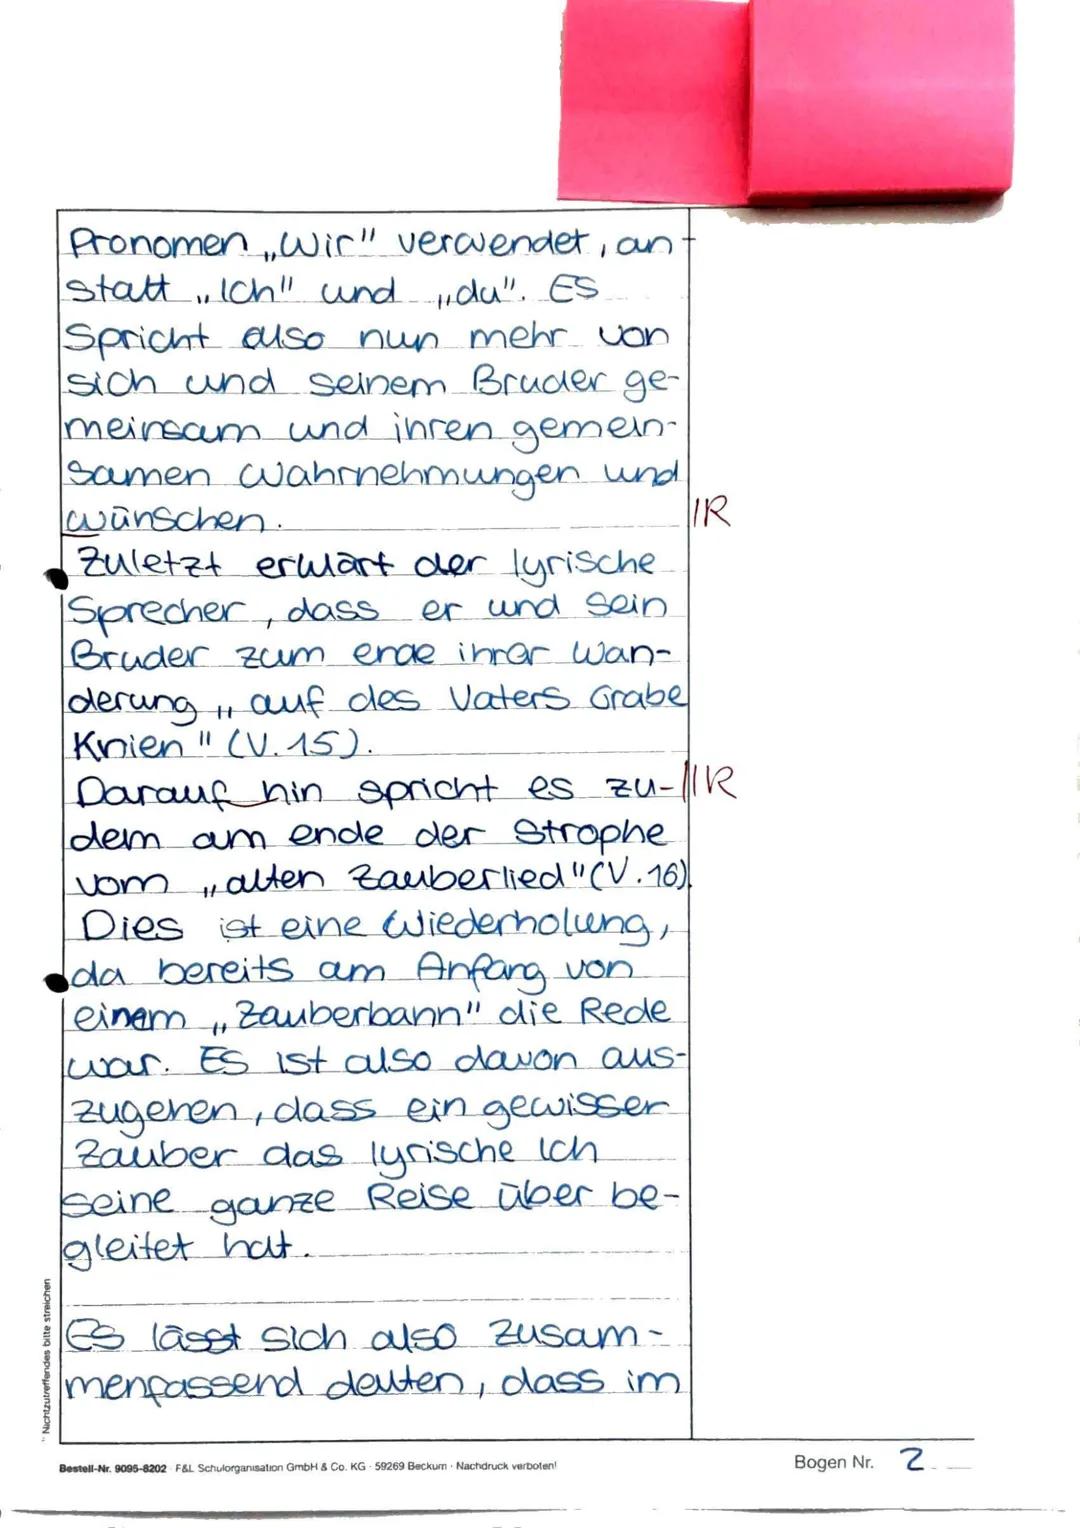 Pronomen „Wir" verwendet, an
statt „Ich" und „du". Es
Spricht also nun mehr von
sich und seinem Bruder ge-
meinsam und ihren gemein-
samen Wahrnehmungen und
wünschen. IR
Zuletzt erklärt der lyrische
Sprecher, dass er und sein
Bruder zum ende ihrer Wan-
derung „auf des Vaters Grabe
Knien" (V.15).
Darauf hin spricht es zu- IIR
dem am ende der Strophe
vom „alten Zauberlied" (V.16)
Dies ist eine Wiederholung,
da bereits am Anfang von
einem „Zauberbann" die Rede
war. Es ist also davon aus-
zugehen, dass ein gewisser
Zauber das lyrische Ich
seine ganze Reise über be-
gleitet hat.
Es lässt sich also zusam-
menfassend deuten, dass im
" Nichtzutreffendes bitte streichen
Bestell-Nr. 9095-8202 F&L Schulorganisation GmbH & Co. KG · 59269 Beckum · Nachdruck verboten!
Bogen Nr. 2